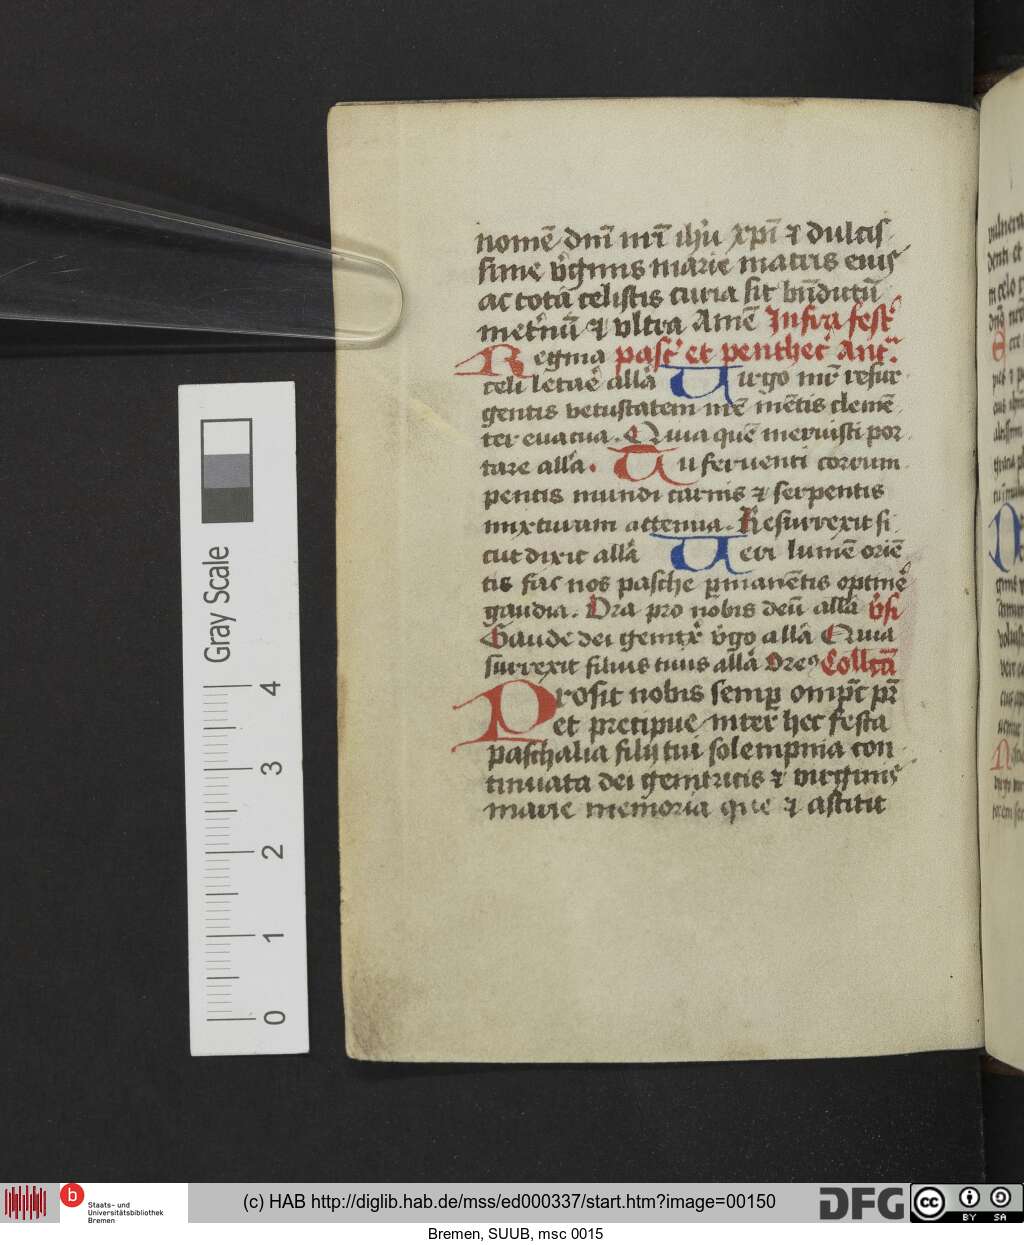 nomē dnī nrī ihū xp̄i ⁊ dulcis
sime v̓ginis marie matris eius
ac tota celistis curia sit bn̄dictū
inet̓nū ⁊ vltra Amē Infra fest̓
Regina pasc̓ et penthec̓ Ant̄:
celi letare̓ alla̓ Uirgo mr̄ resur
gentis vetustatem nrē mētis clemē
ter euacua. Quia quē meruisti por
tare alla̓. Tu feruenti corrum
pentis mundi carnis ⁊ serpentis
mixturam attenua. Resurrexit si
cut dixit alla̓ Ueri lumē oriē
tis fac nos pasche ꝑmanētis optine̓
gaudia. Ora pro nobis deū alla̓ v̓si
Gaude dei genitx̓ v̓go alla̓ Quia
surrexit filius tuus alla̓ Oreꝰ Collcā
Prosit nobis semꝑ omp̄c pr̄
et precipue inter hec festa
paschalia filij tui solempnia con
tinuata dei genitricis ⁊ virginis
marie memoria que ⁊ astitit
vulnera
denti et
in celo
Gray Scale
4
3
2
1
0
b
Staats- und
Universitätsbibliothek
Bremen
(c) HAB http://diglib.hab.de/mss/ed000337/start.htm?image=00150
DFG
cc
BY SA
Bremen, SUUB, msc 0015